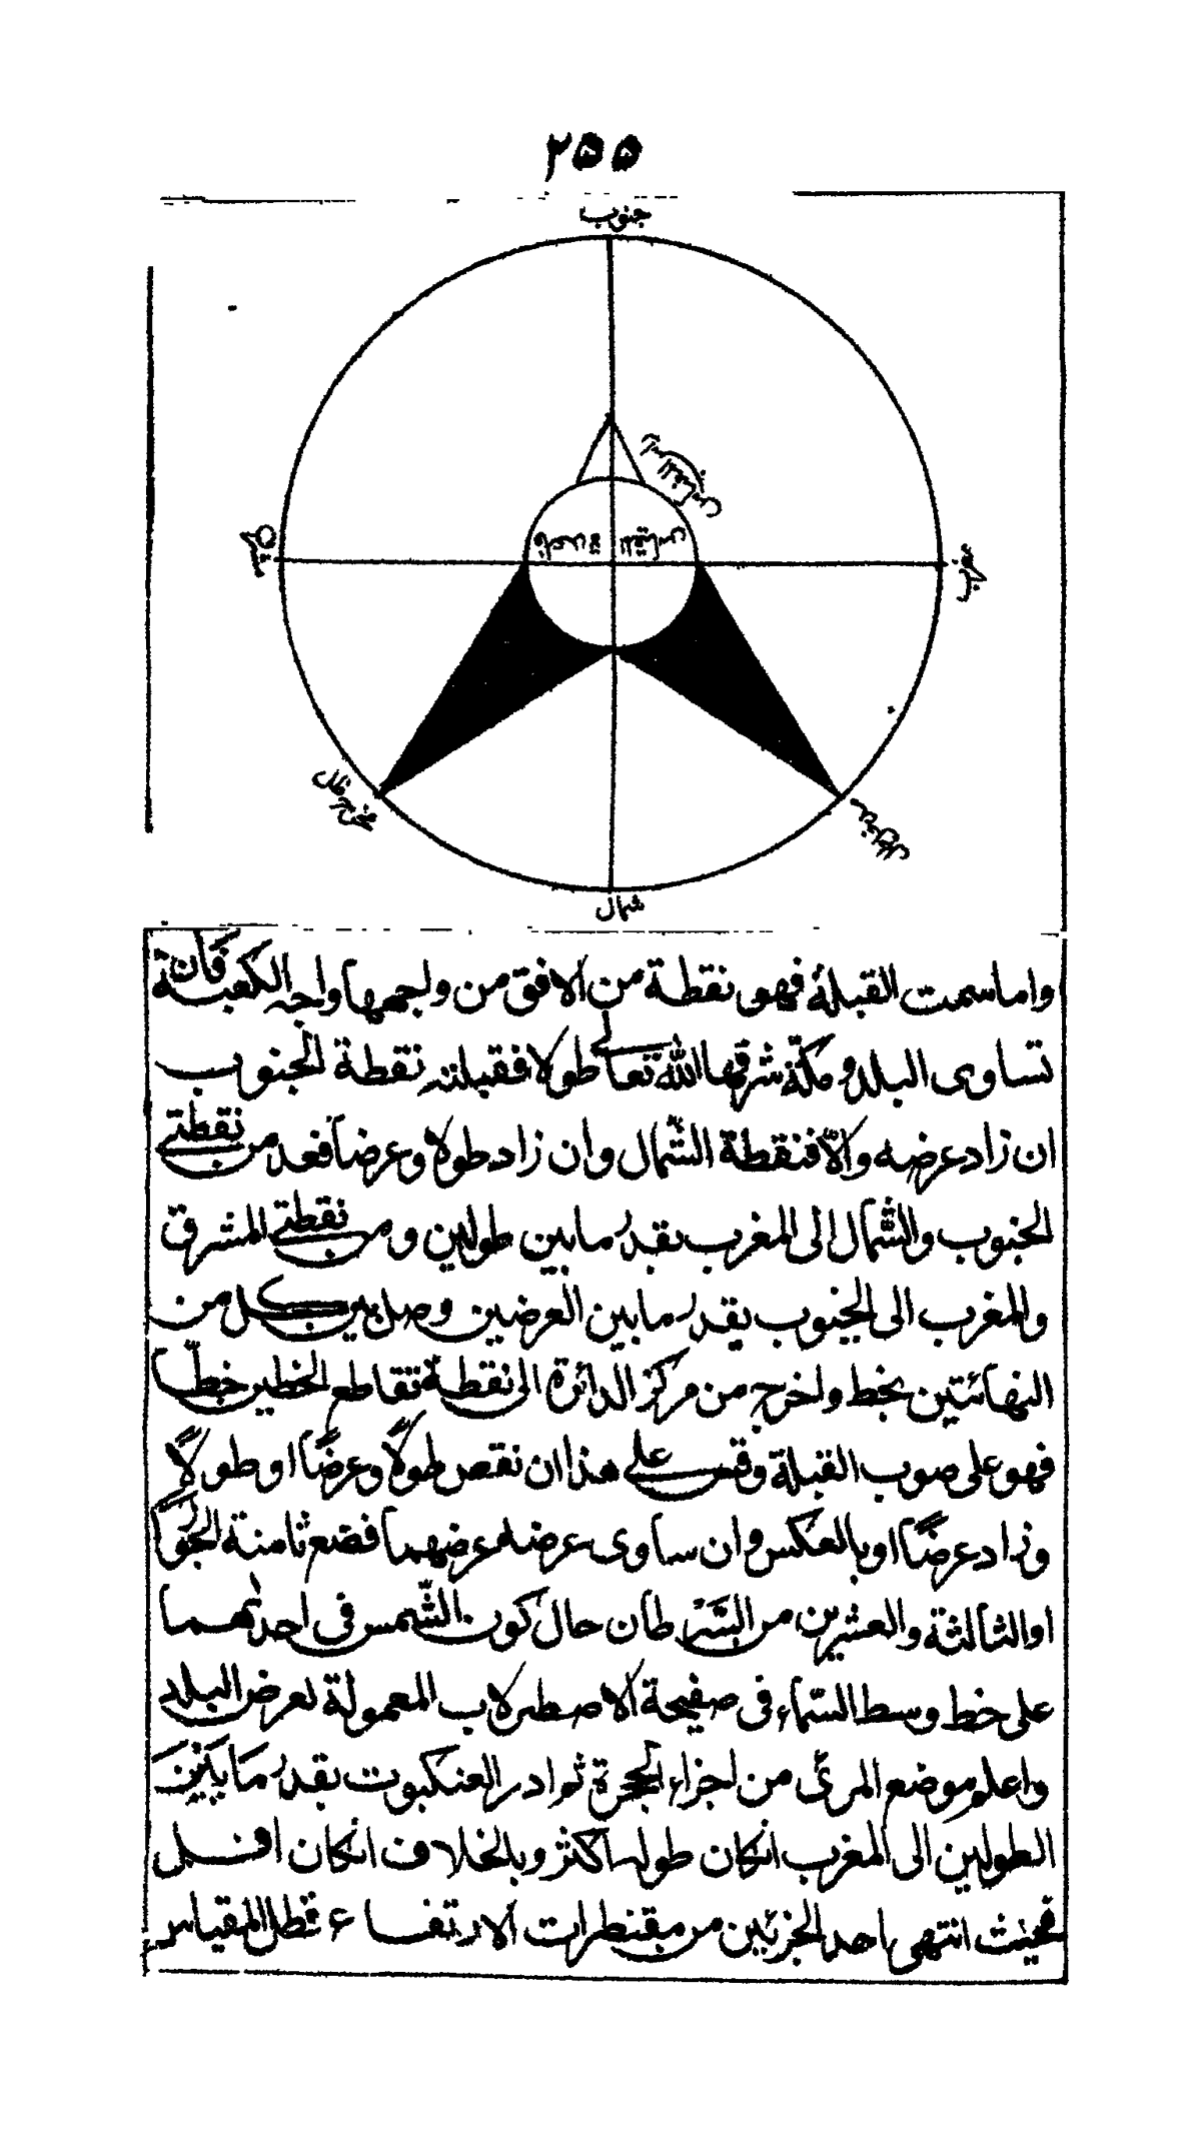 ٢٥٥
جنوب
رأس المقياس
مشرق
قاعدة المقياس
مغرب
مخرج ظل
مدخل ظل
شمال
واما سمت القبلة فهو نقطة من الافق من واجهها واجه الكعبة فان
تساوى البلد ومكّة شرفها الله تعالى طولا فقبلته نقطة الجنوب
ان زاد عرضه والّا فنقطة الشّمال وان زاد طولا وعرضا فعد من نقطتى
الجنوب والشّمال الى المغرب بقدر ما بين طولين ومن نقطتى المشرق
والمغرب الى الجنوب بقدر ما بين العرضين وصل بين كل من
النهائتين بخط واخرج من مركز الدائرة الى نقطة تقاطع الخطين خطّا
فهو على صوب القبلة وقس على هذا ان نقص طولًا وعرضًا او طولًا
وزاد عرضًا او بالعكس وان ساوى عرضه عرضهما فضع ثامنة الجوزا
او الثالثة والعشرين من السّرطان حال كون الشّمس فى احدٰهما
على خط وسط السّماء فى صفيحة الاصطرلاب المعمولة لعرض البلد
واعلم موضع المرئى من اجزاء الحجرة ثم ادر العنكبوت بقدر ما بَيْنَ
الطولين الى المغرب انكان طولها اكثر وبالخلاف انكان اقل
فحيث انتهى احد الجزئين من مقنطرات الارتفاع فظل المقياس